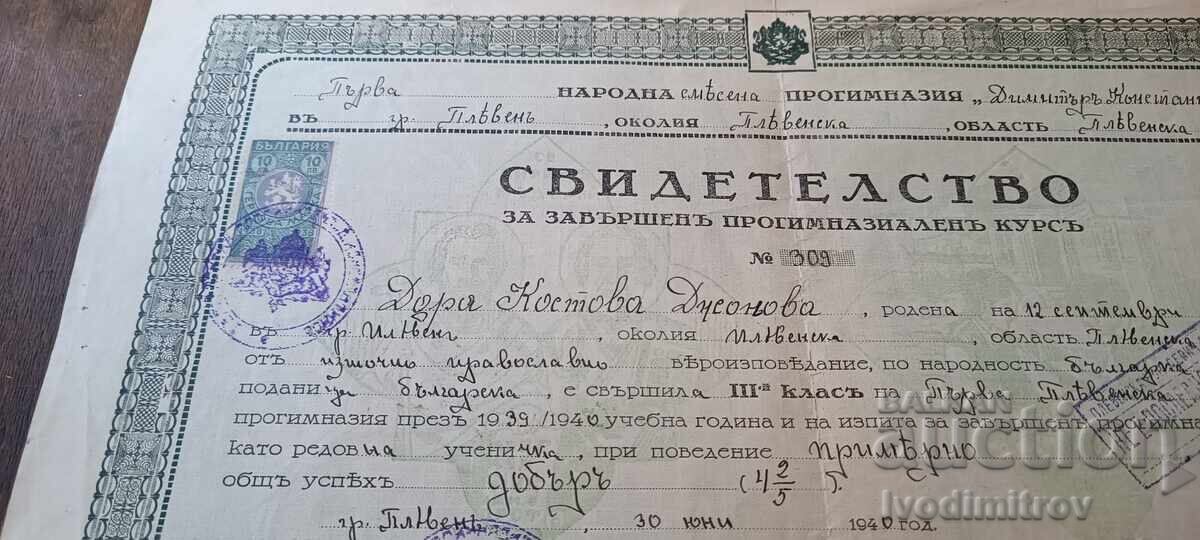 Първа НАРОДНА смѣсена ПРОГИМНАЗИЯ „Димитъръ Констан
ВЪ гр. Плѣвенъ, ОКОЛИЯ Плѣвенска, ОБЛАСТЬ Плѣвенска
БЪЛГАРИЯ
10 10
ЛВ
СВИДЕТЕЛСТВО
ЗА ЗАВЪРШЕНЪ ПРОГИМНАЗИАЛЕНЪ КУРСЪ
№ 309
Дора Костова, родена на 12 септември
въ гр. Плѣвенъ, околия Плѣвенска, область Плѣвенска
отъ източно православно вѣроизповѣдание, по народность българка
подани ца българска, е свършила III-й КЛАСЪ на Първа Плѣвенска
прогимназия през 1939/1940 учебна година и на изпита за завършенъ прогимна
като редовна ученичка, при поведение примѣрно
общъ успѣхъ добъръ (4 2/5).
гр. Плѣвенъ, 30 юни 1940 год.
БАЛКАН
auction
Ivodimitrov